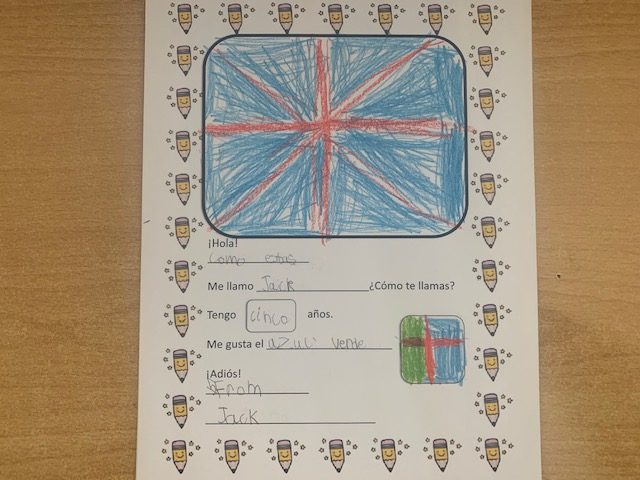 ¡Hola!
como estas
Me llamo Jack ¿Cómo te llamas?
Tengo cinco años.
Me gusta el azul i verde
¡Adiós!
From
Jack